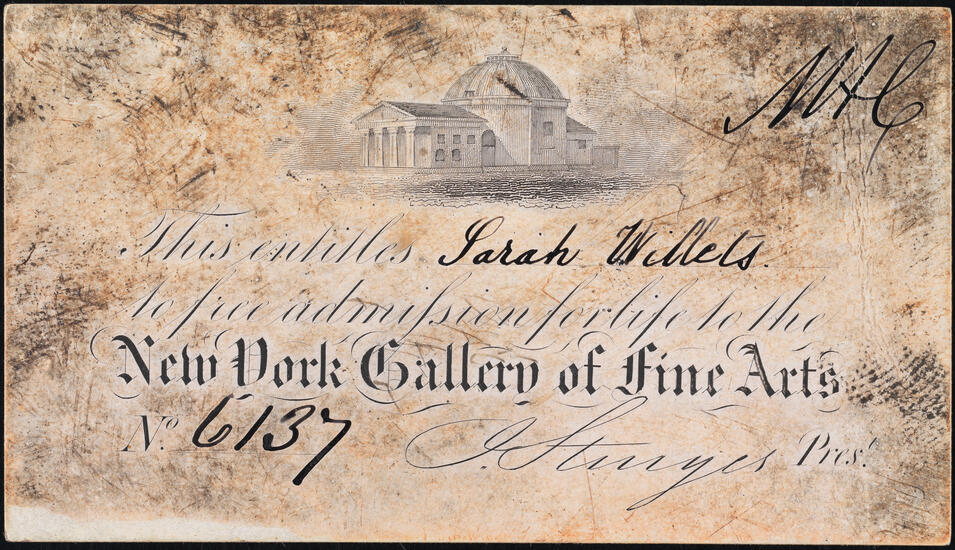 MHC
This entitles Sarah Willets
to free admission for life to the
New York Gallery of Fine Arts
No. 6137 J. Sturges Prest.